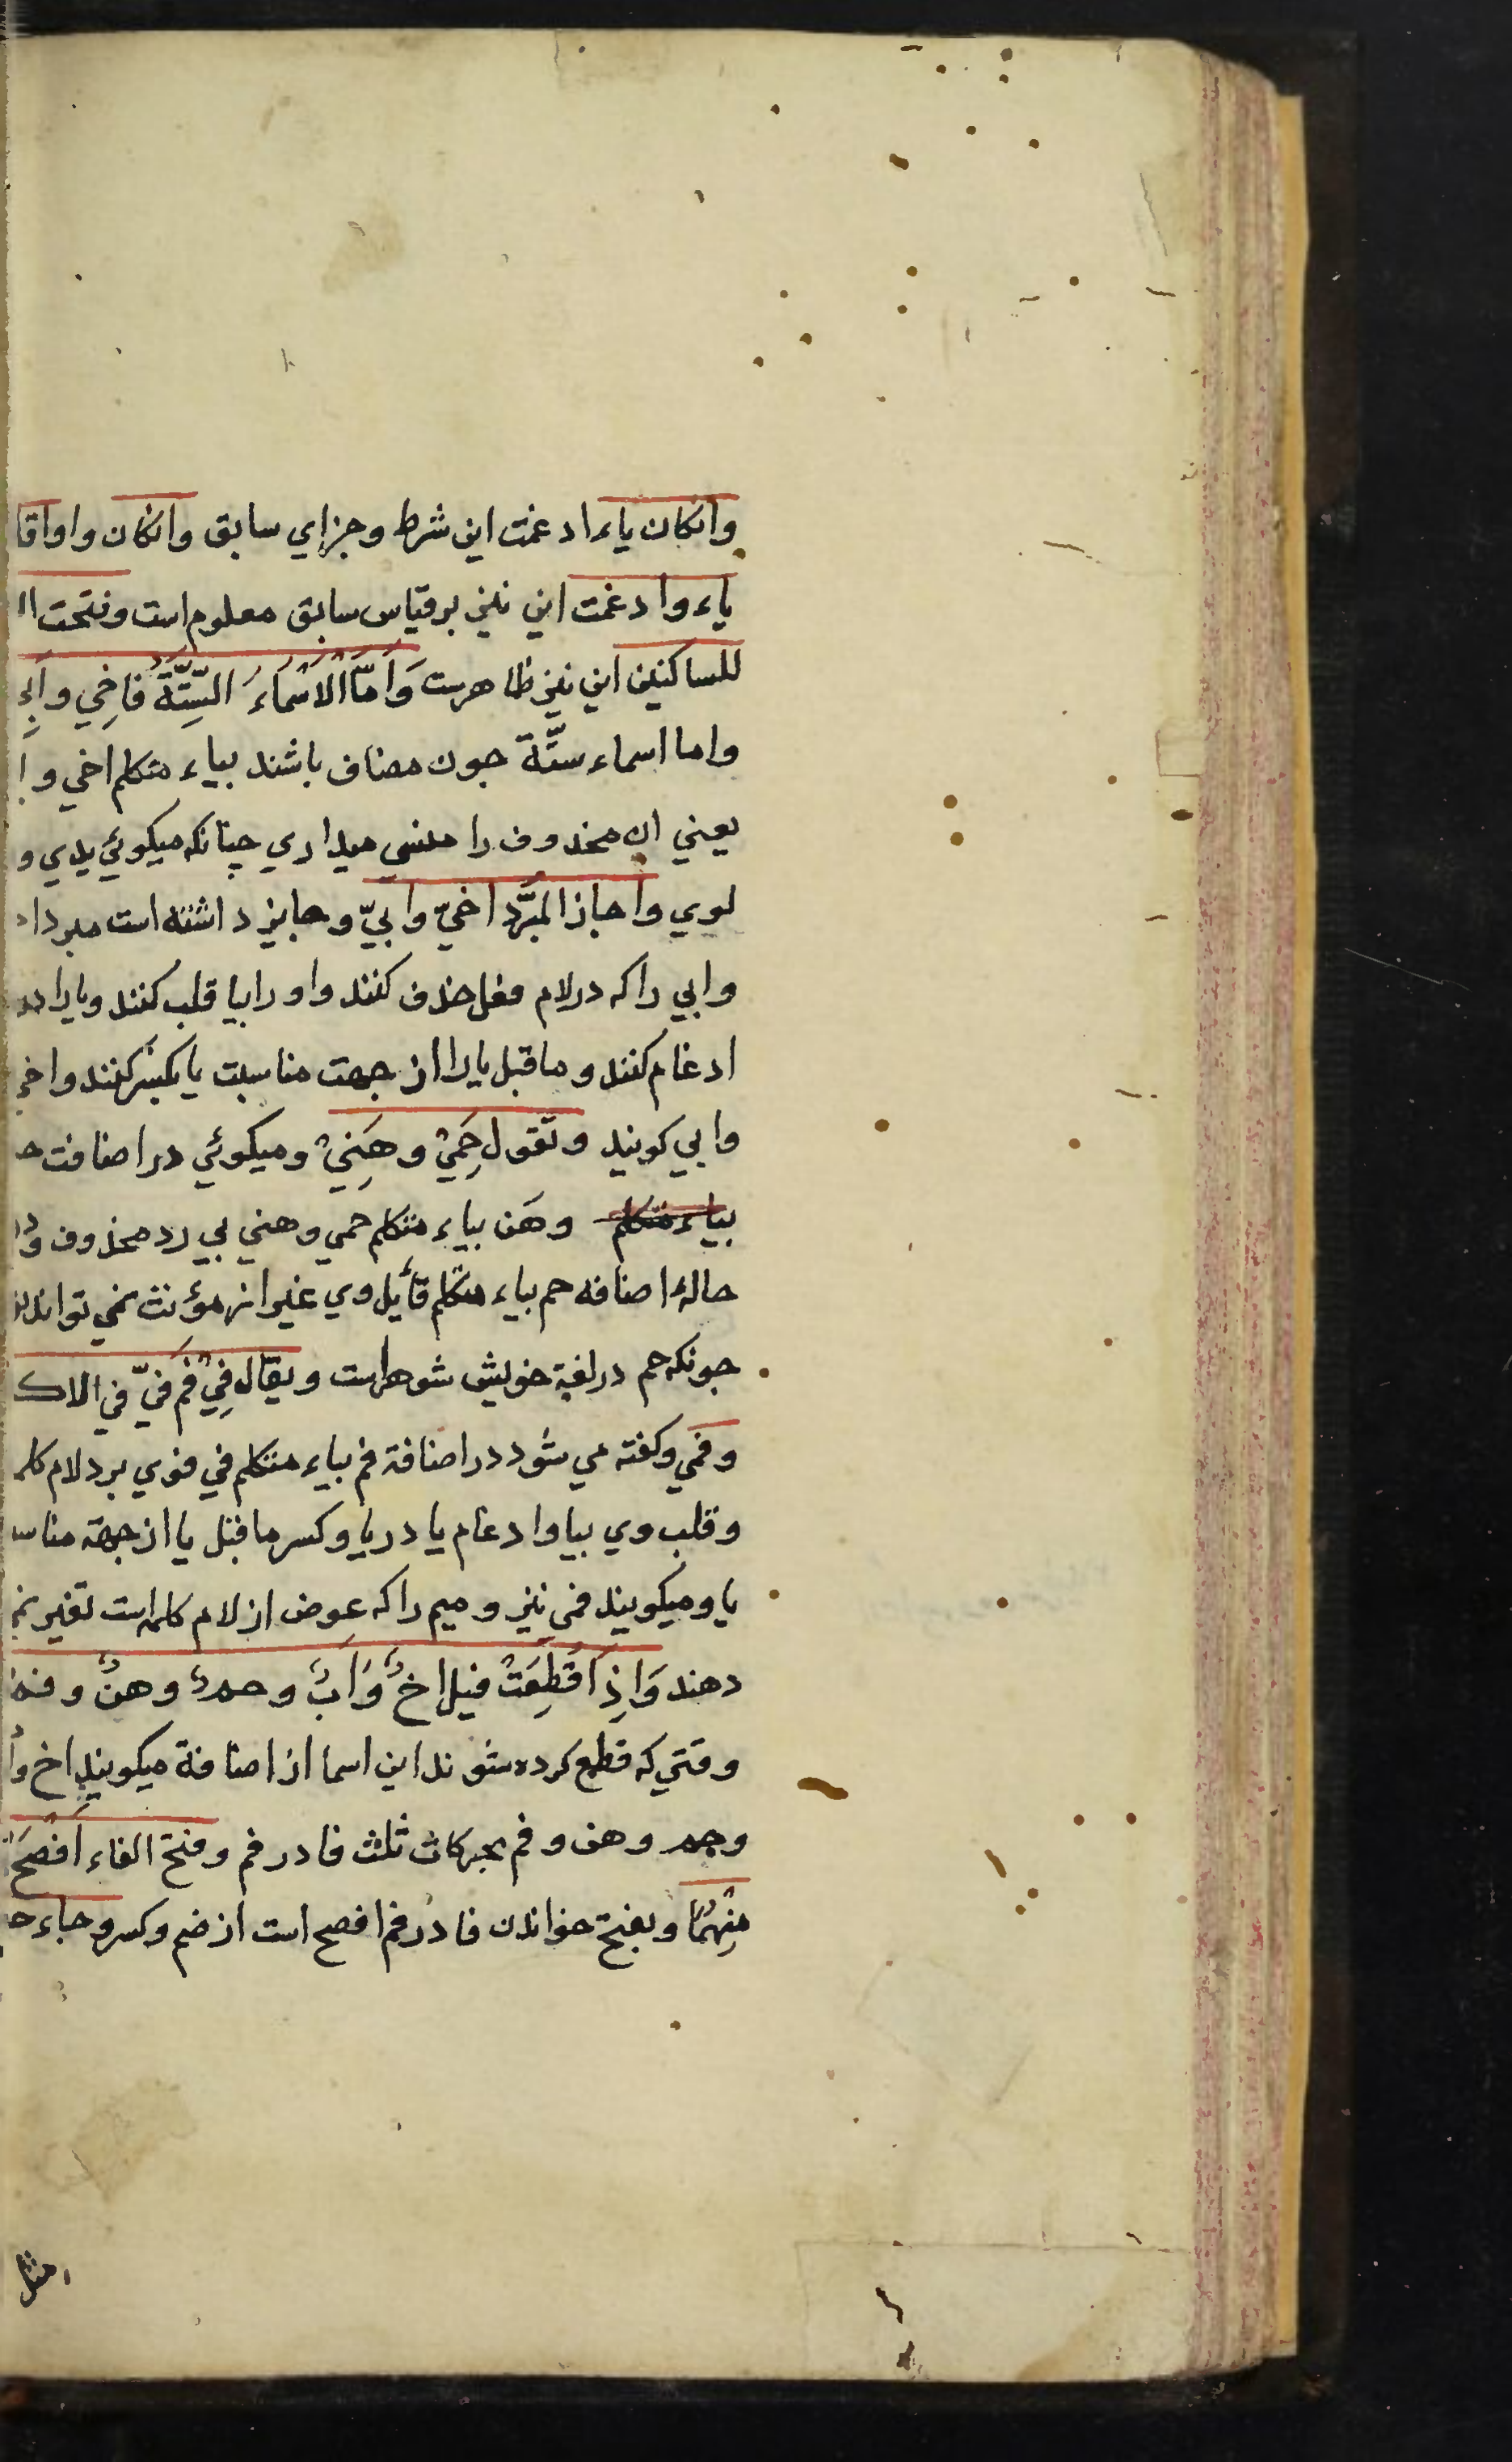 وانكان ياء ادغمت اين شرط وجزاي سابق وانكان واوا قا
ياء وادغمت اين نيز بر قياس سابق معلوم است وفتحت ا
للساكنين اين نيز ظاهرست وَاَمّا الْاَسْمَاءُ السِّتَّةُ فاخِي واَبِ
واما اسماء ستّة جون مضاف باشند بياء متكلم اخي و
يعني ان محذوف را منسي ميداري چنانكه ميكوئي يدي و
لوي واجاز المبَرّد اخيّ وابيّ وجايز داشته است مبرد
وابي را كه در لام فعل حذف كنند واو را بيا قلب كنند ويا را
ادغام كنند وما قبل يا را از جهت مناسبت يا بكسْر كنند واخي
وابي كويند وتقول حَمِيْ وهَنِيْ وميكوئي در اضافت
بياء متكلم وهَن بياء متكلم حمي وهني بي رد محذوف و
حالهٔ اضافه حم بياء متكلم قائل وي غير از مؤنث نمي تواند
جونكه حم در لغة خويش شوهراست ويقال فِيْ فم فيّ في الاك
وفمي وكفته مي شود در اضافة فم بياء متكلم في فوي برد لام كل
وقلب وي بيا وادغام يا در يا وكسر ما قبل يا از جهة مناس
يا وميكويند فمي نيز وميم را كه عوض از لام كلمه است تغير نم
دهند وَاِذَا قُطِعَتْ قيل اخٌ وَاَبٌ وحمٌ وهنٌ وفمٌ
وقتي كه قطع كرده شوند اين اسما از اضافة ميكويند اخ وأ
وحم وهن وفم بحركات ثلث فا در فم وفتح الفاء اَفْصَحُ
مِنْهُمَا وبفتح خواندن فا در فم افصح است از ضم وكسر وجاء ح
مثل